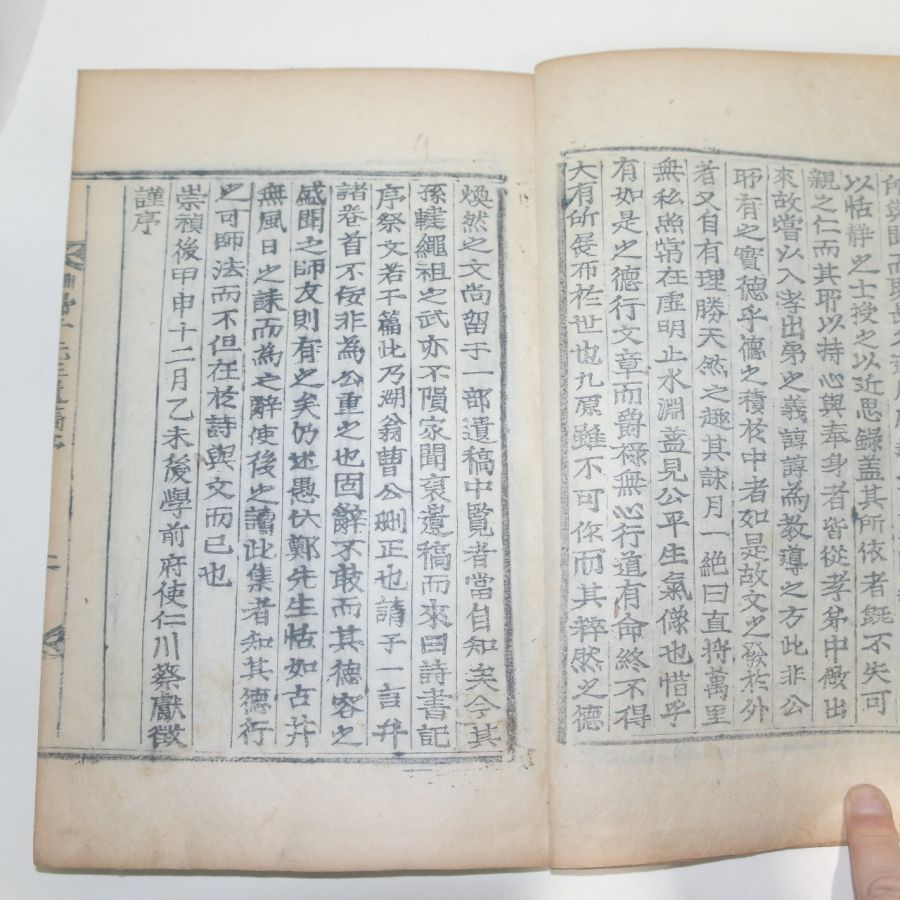 以恬静之士授之以近思録盖其所依者旣不失可
親之仁而其耶以持心與奉身者皆從孝弟中做出
來故嘗以入孝出弟之義諄諄為教導之方此非公
耶有之實德乎德之積於中者如是故文之發於外
者又自有理勝天然之趣其詠月一絶曰直將萬里
無私照常在虛明止水淵盖見公平生氣像也惜乎
有如是之德行文章而爵祿無心行道有命終不得
大有所展布於世也九原雖不可作而其粹然之德
煥然之文尚留于一部遺稿中覽者當自知矣今其
孫韑繩祖之武亦不隕家聞裒遺稿而來曰詩書記
序祭文若干篇此乃湖翁曹公刪正也請子一言弁
諸卷首不佞非為公重之也固辭不敢而其德容之
盛聞之師友則有之矣仍述愚伏鄭先生恬如古井
無風日之誄而為之辭使後之讀此集者知其德行
之可師法而不但在於詩與文而已也
崇禎後甲申十二月乙未後學前府使仁川蔡獻徵
謹序